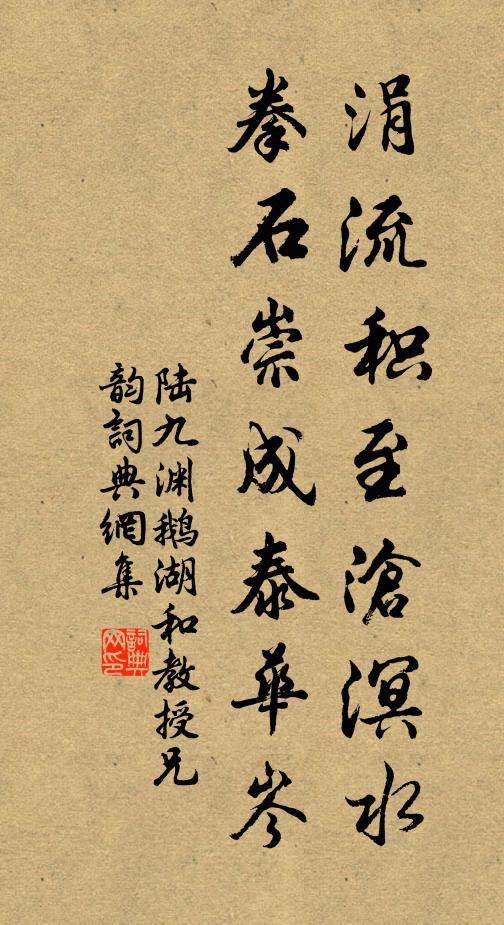 涓流积至滄溟水
拳石崇成泰华岑
陆九渊鹅湖和教授兄
韵詞典網集
詞典网印